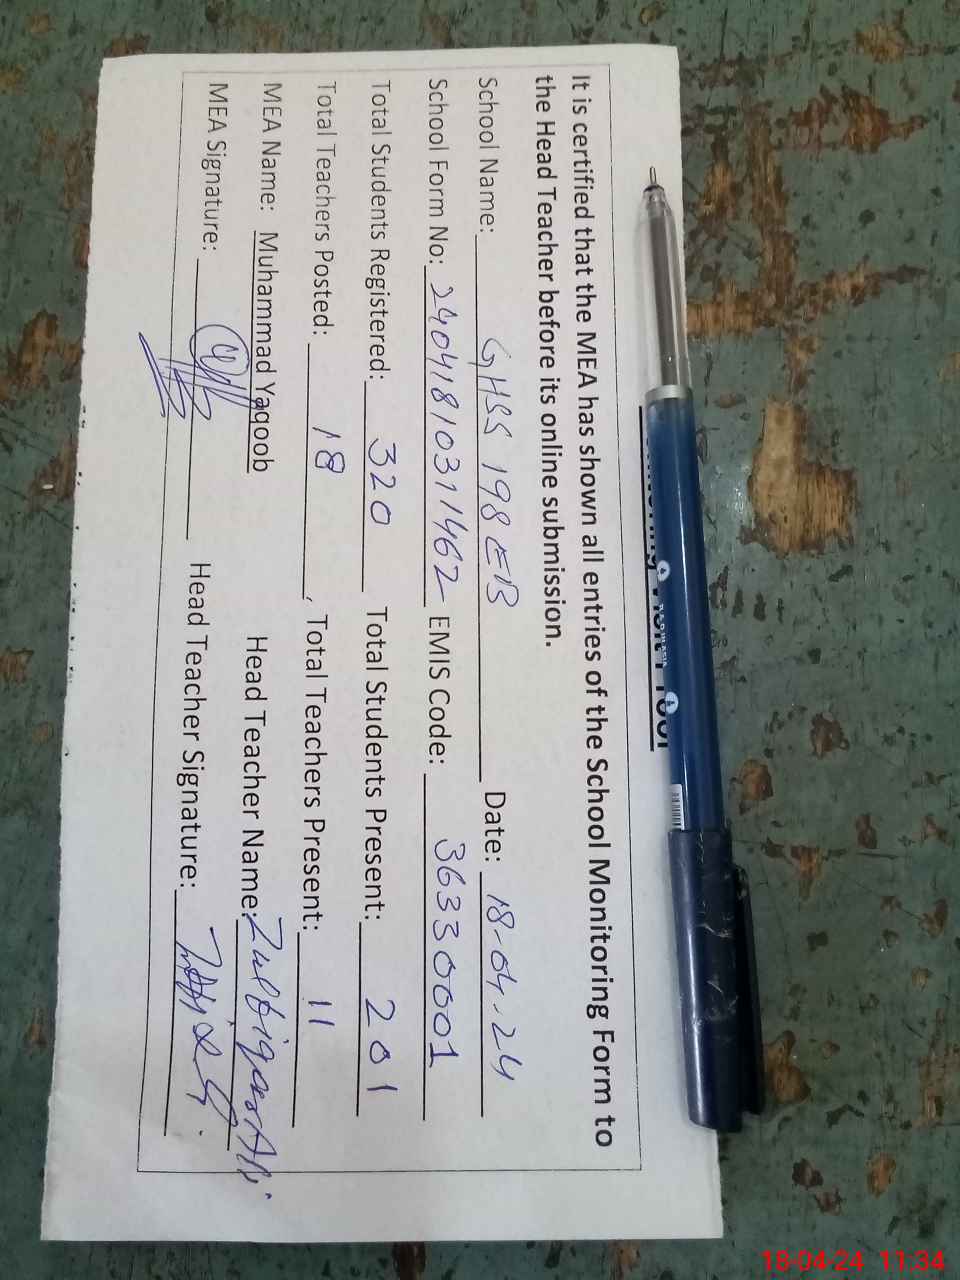 It is certified that the MEA has shown all entries of the School Monitoring Form to
the Head Teacher before its online submission.
School Name: GHSS 198 EB Date: 18-04-24
School Form No: 24041810311462 EMIS Code: 36330001
Total Students Registered: 320 Total Students Present: 201
Total Teachers Posted: 18, Total Teachers Present: 11
MEA Name: Muhammad Yaqoob Head Teacher Name: Zulfiqar Ali
MEA Signature: Head Teacher Signature:
18-04-24 11:34